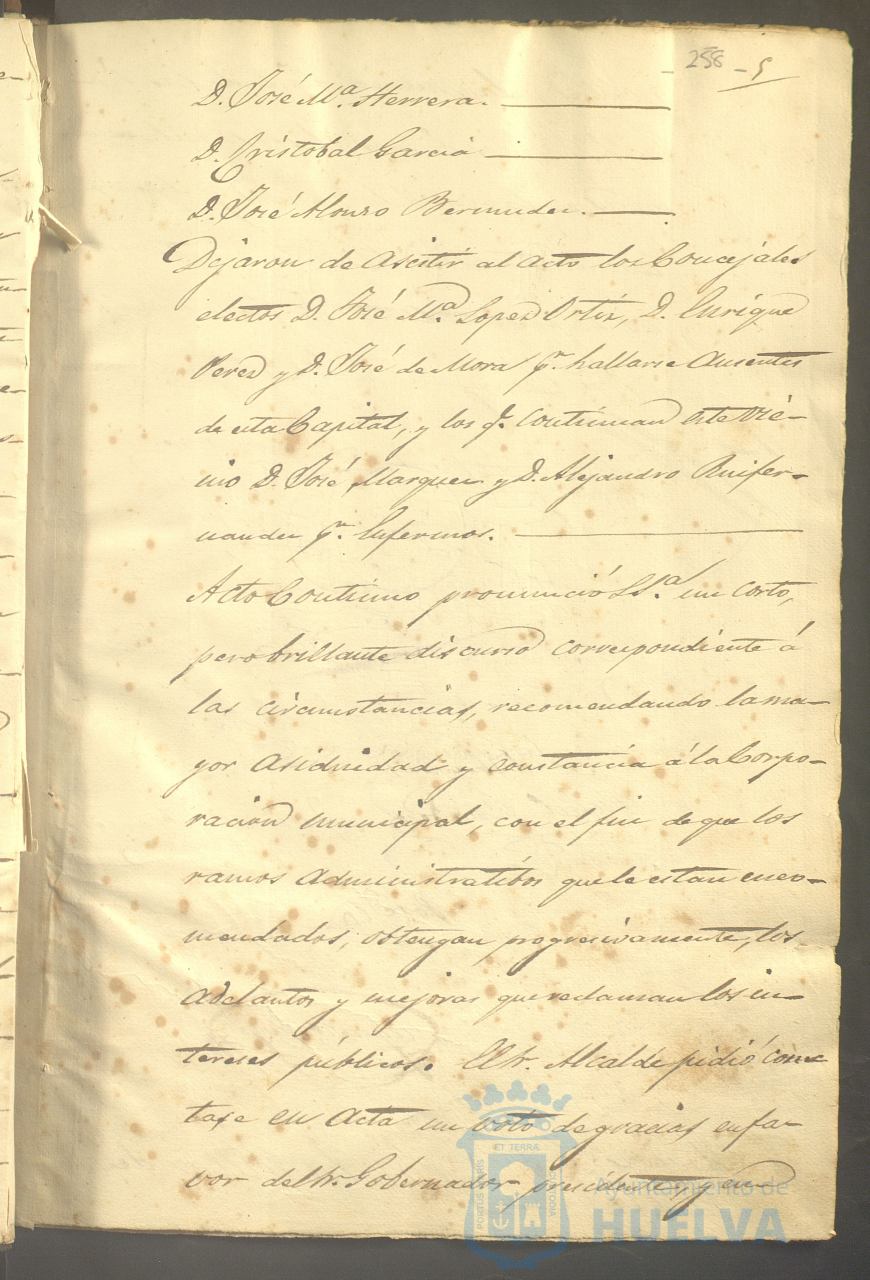 258 - 5
D. José Mª Herrera.
D. Cristobal Garcia
D. José Alonzo Bermudez.
Dejaron de asistir al acto los Concejales
electos D. José Mª Lopez Ortiz, D. Enrique
Perez y D. José de Mora pr. hallarse ausentes
de esta Capital, y los q. continuan este vié-
nio D. José Marquez y D. Alejandro Ruifer-
nandez pr. enfermos.
Acto Continuo pronunció SSª un corto,
pero brillante discurso correspondiente á
las circunstancias, recomendando la ma-
yor asiduidad y constancia á la Corpo-
ración municipal, con el fin de que los
ramos administratibos que le estan enco-
mendados, obtengan progresivamente, los
adelantos y mejoras que reclaman los in-
tereses públicos. El Sr. Alcalde pidió cons-
tase en acta un voto de gracias en fa-
vor del Sr. Gobernador presidente y en
ET TERRÆ
PORTUS MARIS
CUSTODIA
Ayuntamiento de
HUELVA